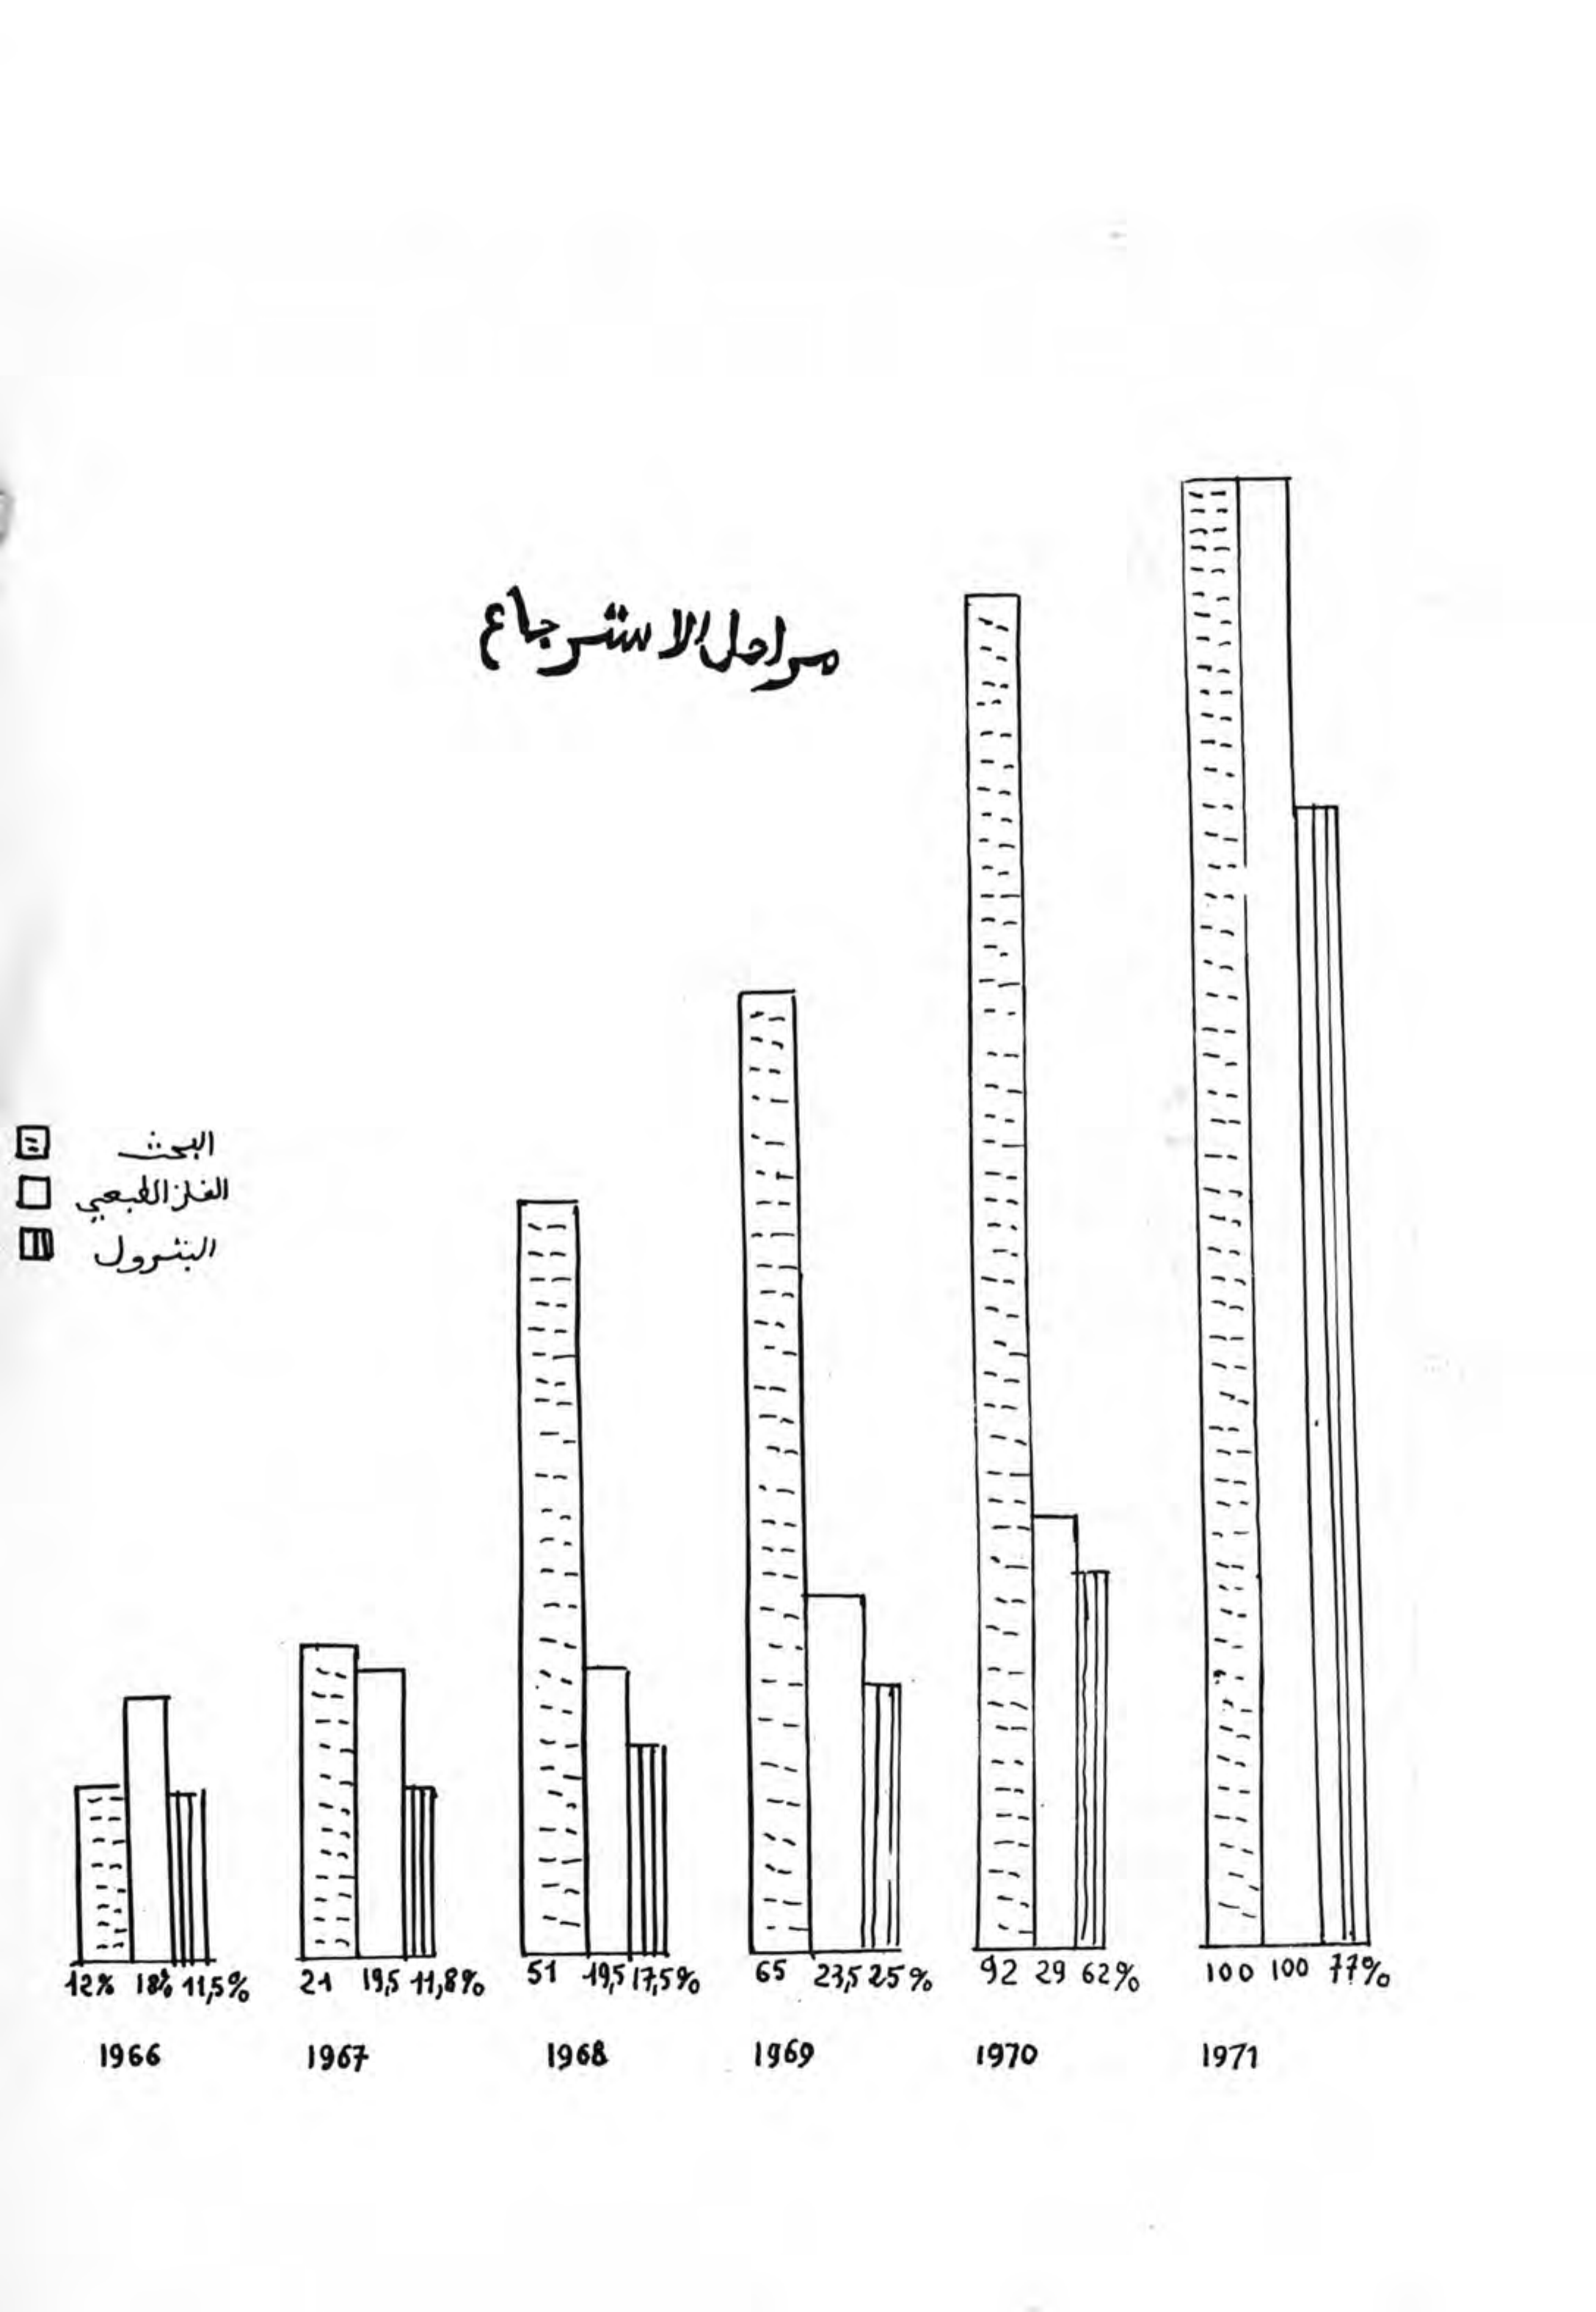 مراحل الاسترجاع
البحث
الغاز الطبيعي
البترول
12% 18% 11,5%
21 19,5 11,8%
51 19,5 17,5%
65 23,5 25%
92 29 62%
100 100 77%
1966 1967 1968 1969 1970 1971